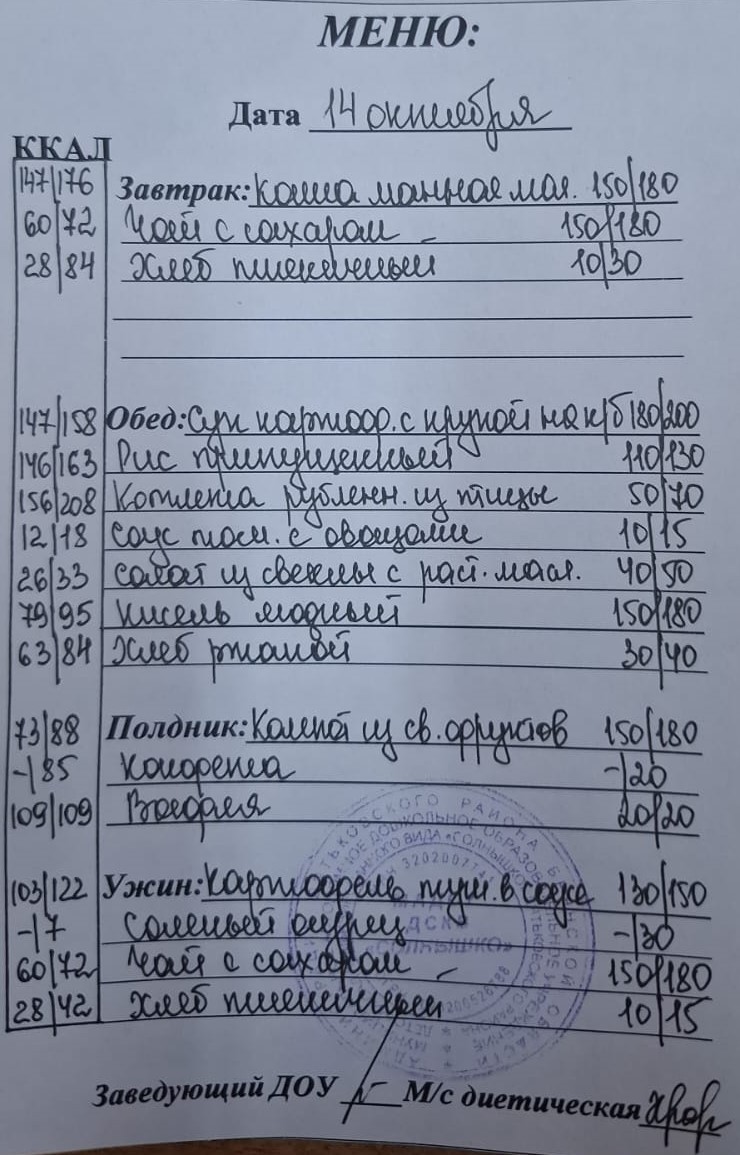 МЕНЮ:
Дата 14 октября
ККАЛ
147/176 Завтрак: Каша манная мол. 150/180
60/72 Чай с сахаром 150/180
28/84 Хлеб пшеничный 10/30
147/158 Обед: Суп картоф. с крупой на к/б 180/200
146/163 Рис припущенный 110/130
156/208 Котлета рубленн. из птицы 50/70
12/18 Соус том. с овощами 10/15
26/33 Салат из свеклы с раст. масл. 40/50
79/95 Кисель модный 150/180
63/84 Хлеб ржаной 30/40
73/88 Полдник: Компот из св. фруктов 150/180
-/85 Конфета -/20
109/109 Вафля 20/20
103/122 Ужин: Картофель туш. в соусе 130/150
-/7 Соленый огурец -/30
60/72 Чай с сахаром 150/180
28/42 Хлеб пшеничный 10/15
Заведующий ДОУ М/с диетическая